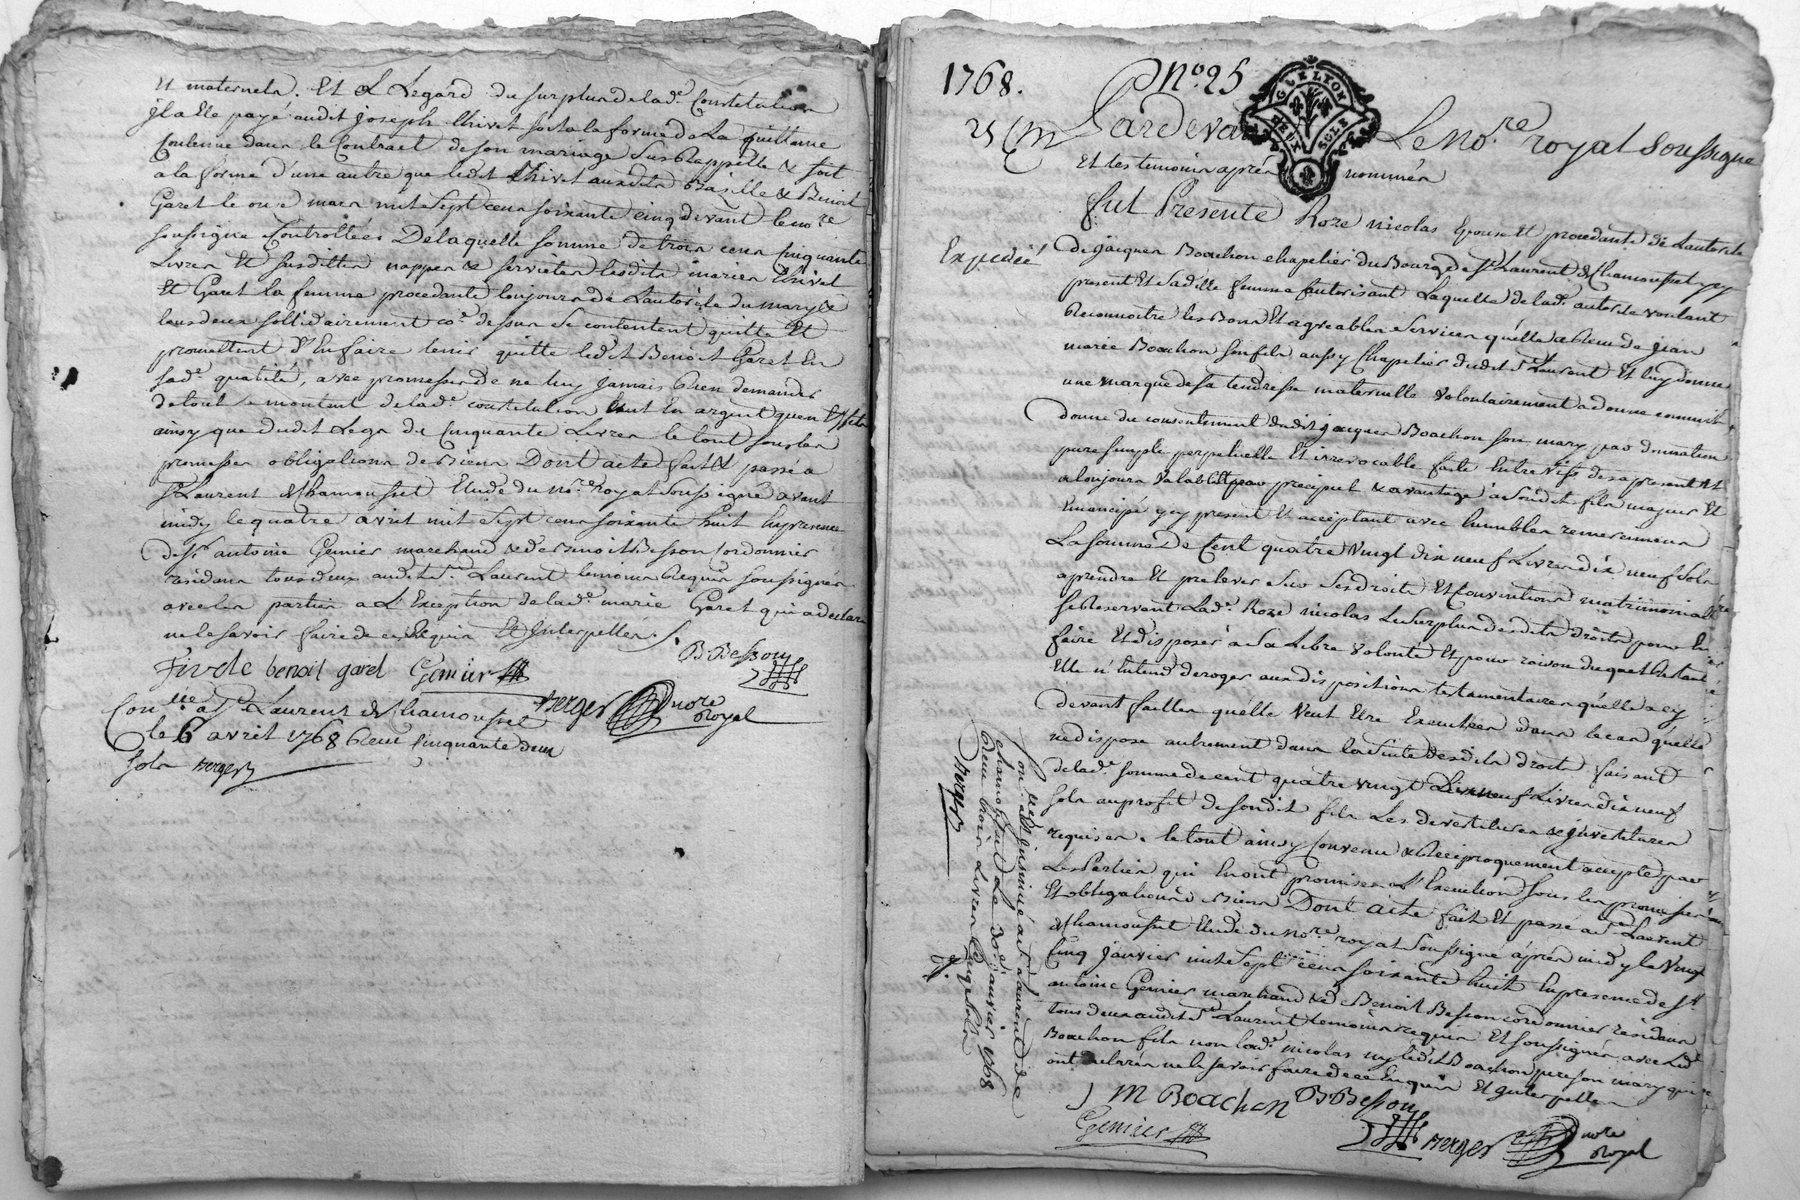 et maternels. Et A Legard du surplus de lad.e Constitution
il a Ete payé audit joseph thivet sous la forme de La quittance
Contenue dans le Contract de son mariage Sus Rappellé & soit
a la forme d'une autre que ledit thivet auxdits Bazille & Benoit
Garet le onze mars mil Sept cens soixante cinq devant le no.re
soussigné Controllées De laquelle somme de trois cens Cinquante
Livres Et susdittes nappes & serviettes lesdits mariés thivet
Et Garet la femme procedante toujours de L'autorité du mary &
tous deux sollidairement co.e dessus Se contentent quitte Et
promettent d'En faire tenir quitte ledit Benoit Garet En
sad.e qualité, avec promesses de ne luy jamais Rien demander
de tout le montant de lad.e constitution tant En argent qu'en Effets
ainsy que dudit Legs de Cinquante Livres le tout sous les
promesses obligations de Biens Dont acte fait & passé a
S.t Laurent de Chamousset Etude du No.re royal soussigné avant
midy le quatre avril mil Sept cens soixante huit En presence
de S.r antoine Genier marchand & de Benoit Besson cordonnier
residans tous deux audit S.t Laurent temoins Requis soussignés
avec les parties a L'Exception de lad.e marie Garet qui a declaré
ne le savoir faire de ce Requis Et Interpellés.
B. Besson
benoit garet Genier
Con.lle a S.t Laurent de Chamousset Berger no.re royal
le 6 avril 1768 Reçu Cinquante deux
sols Berger
1768. N.o 25
G. DE LYON
DEUX SOLS
Pardevant Le No.re royal soussigné
Et les temoins après nommés
Expedié
fut Presente Roze nicolas Epouse Et procedante de L'autorité
de jacques Boachon chapelier du Bourg de S.t Laurent de Chamousset icy
present Et sa ditte femme autorisant Laquelle de lad.e autorité voulant
Reconnoitre les Bons Et agreables Services qu'elle a Reçu de jean
marie Boachon son fils aussy Chapelier dudit S.t Laurent Et luy donner
une marque de sa tendresse maternelle volontairement a donné comme Elle
donne du consentement dudit jacques Boachon son mary par donnation
pure simple perpetuelle Et irrevocable faite Entre vifs des a present Et
a toujours valable Et par preciput & avantage a Sondit fils majeur Et
Emancipé icy present Et acceptant avec humbles remercimens
La somme De Cent quatre Vingt dix neuf Livres dix neuf Sols
a prendre Et prelever Sur Ses droits Et Conventions matrimoniales
se Reservant Lad.e Roze nicolas Le Surplus desdits droits pour En
faire Et disposer a Sa Libre volonté Et pour raison duquel Restant
Elle n'Entend deroger aux dispositions testamentaires qu'elle a cy
devant faittes qu'elle veut Etre Executées dans le cas qu'elle
ne dispose autrement dans la suite desdits droits faisant
de lad.e somme de cent quatre vingt dix neuf Livres dix neuf
sols au profit de sondit fils Les devestitures & investitures
requises. le tout ainsy convenu & Reciproquement accepté par
Les Parties qui En ont promises L'Execution sous les promesses
Et obligations de Biens Dont acte fait Et passé a S.t Laurent
de Chamousset Etude du No.re royal Soussigné après midy le Vingt
Cinq janvier mil Sept cens soixante huit En presence de S.r
antoine Genier marchand & de Benoit Besson cordonnier residans
tous deux audit S.t Laurent temoins requis Et soussignés avec led.t
Boachon fils non lad.e nicolas ny ledit Boachon pere son mary qui
ont declarés ne le savoir faire de ce Enquis Et Interpellés
J M Boachon B. Besson
Genier Berger no.re royal
Con.lle Et insinué a S.t Laurent de
chamousset Le 30 janvier 1768
Reçu trois Livres Cinq sols
Berger